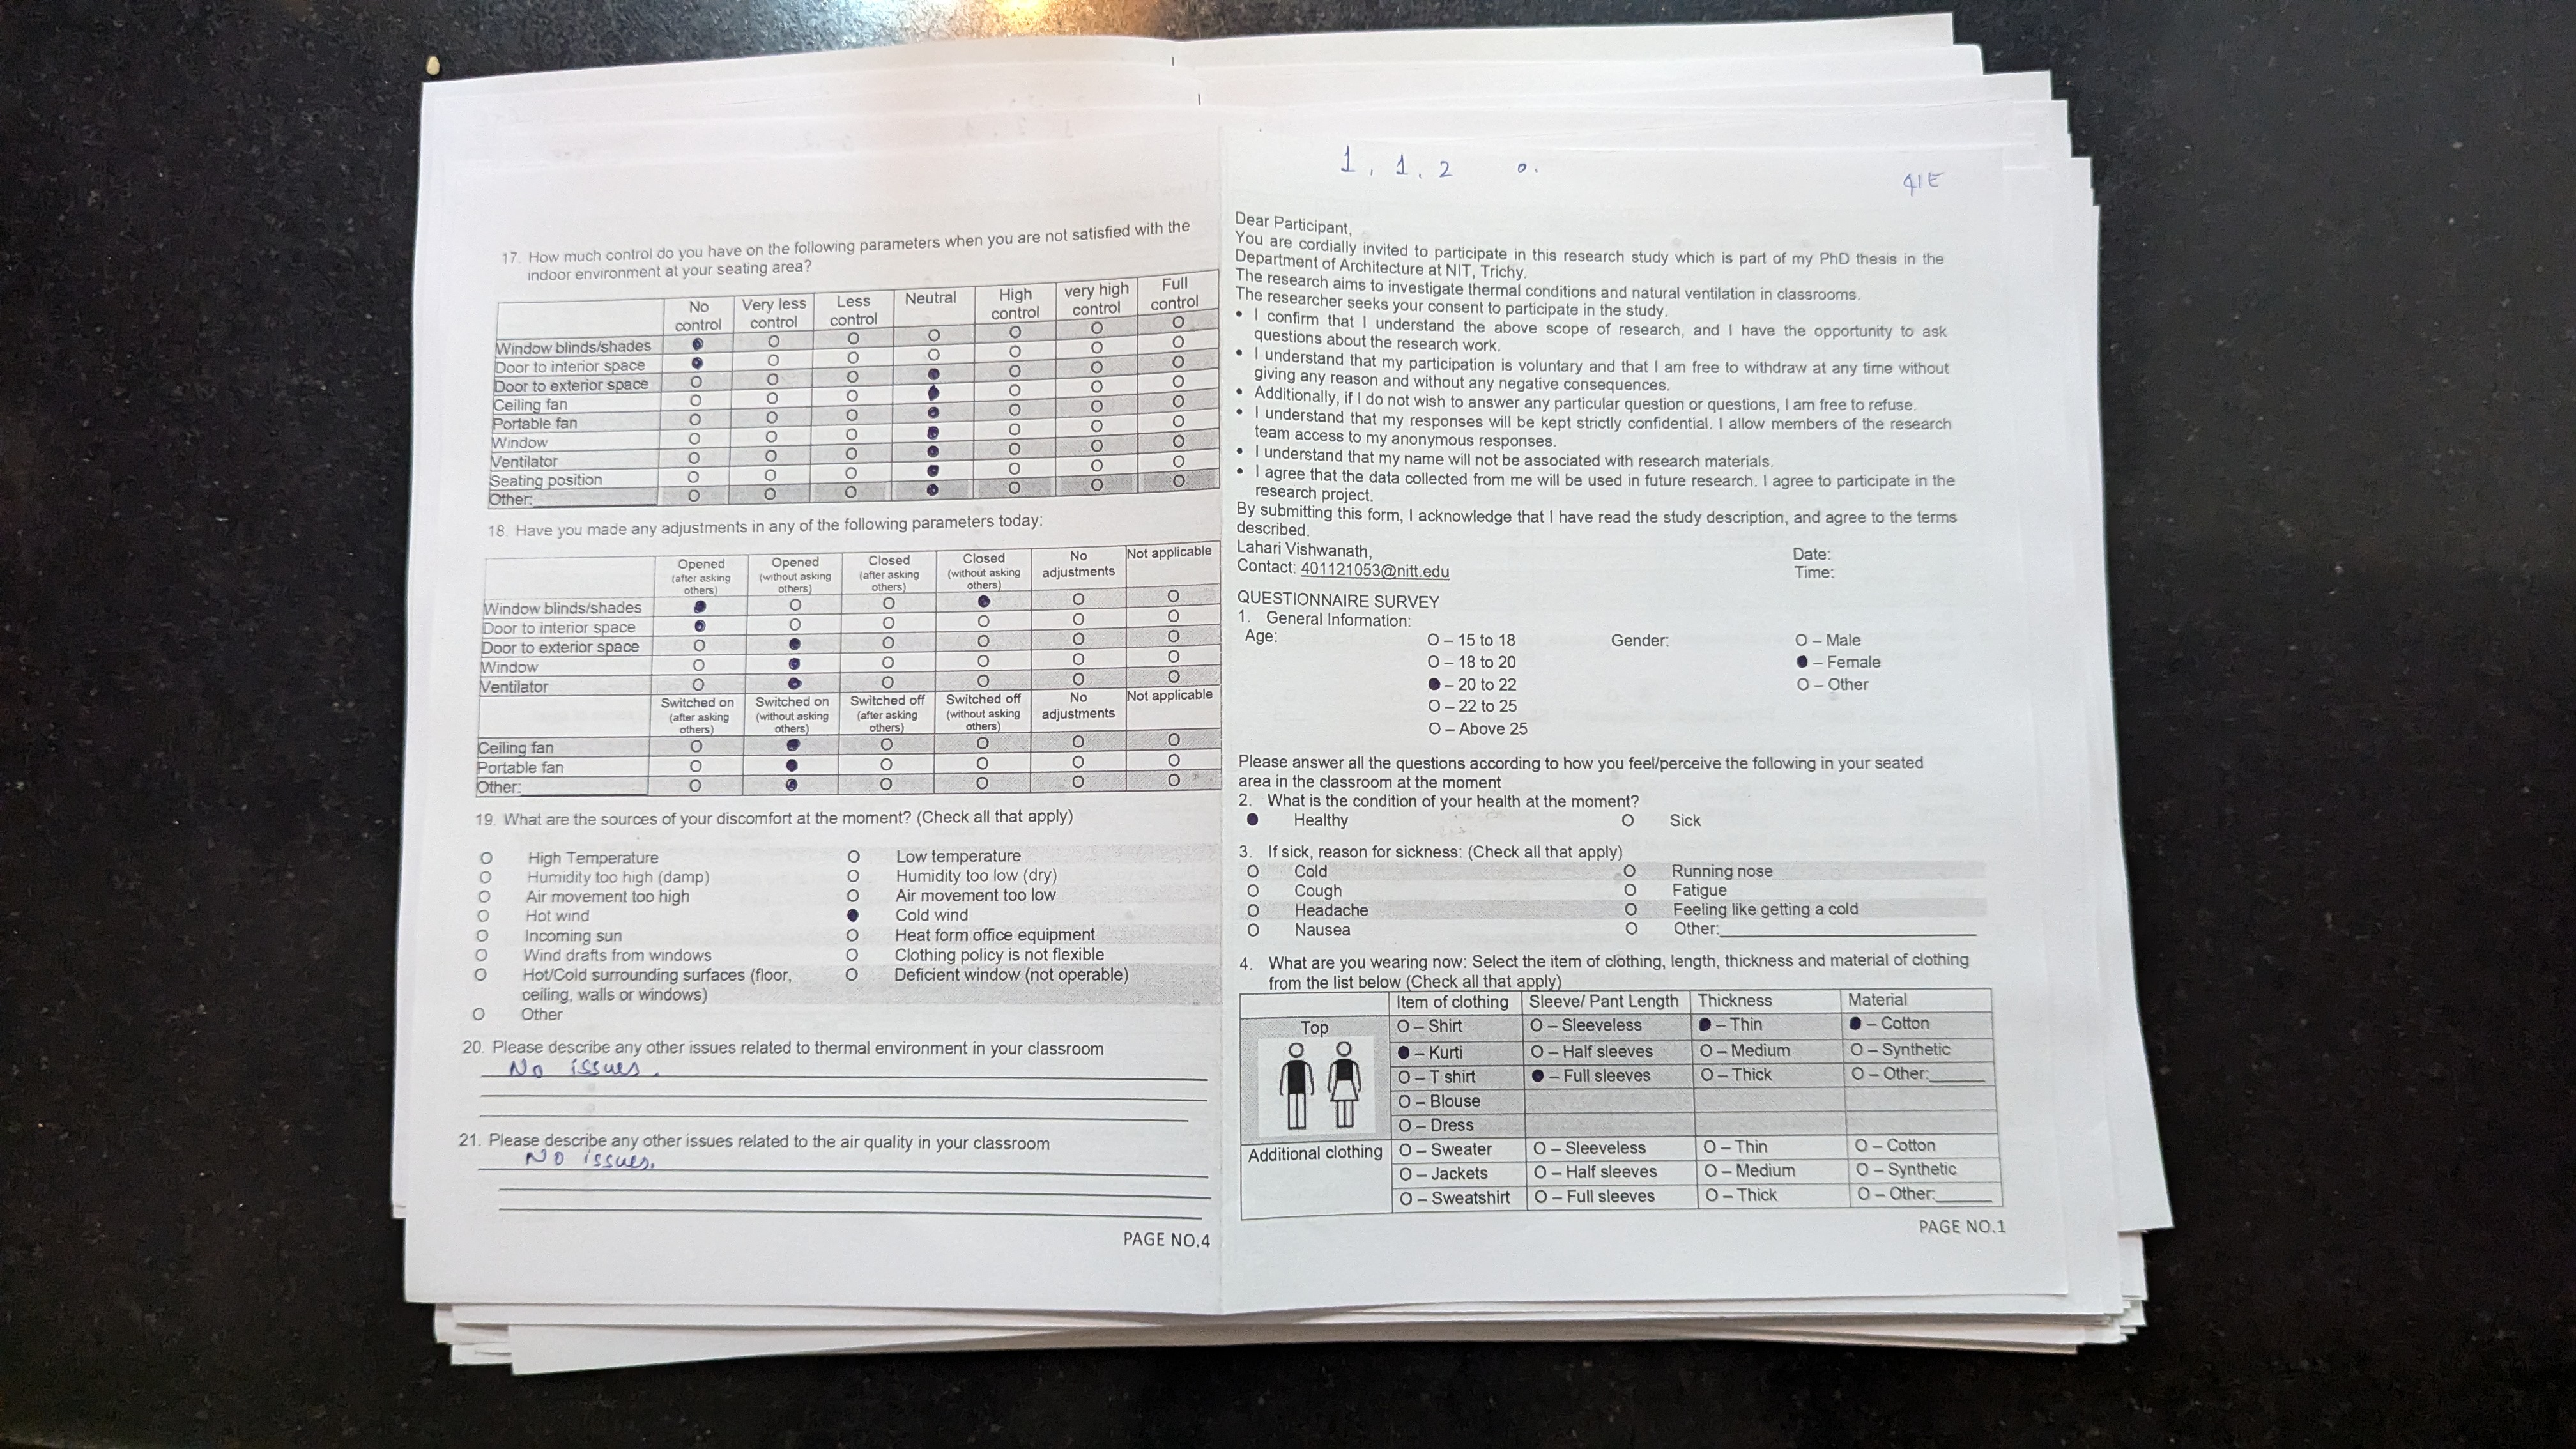 17. How much control do you have on the following parameters when you are not satisfied with the
indoor environment at your seating area?
No control | Very less control | Less control | Neutral | High control | very high control | Full control
Window blinds/shades ● O O O O O O
Door to interior space ● O O O O O O
Door to exterior space O O O ● O O O
Ceiling fan O O O ● O O O
Portable fan O O O ● O O O
Window O O O ● O O O
Ventilator O O O ● O O O
Seating position O O O ● O O O
Other: O O O ● O O O
18. Have you made any adjustments in any of the following parameters today:
Opened (after asking others) | Opened (without asking others) | Closed (after asking others) | Closed (without asking others) | No adjustments | Not applicable
Window blinds/shades ● O O ● O O
Door to interior space ● O O O O O
Door to exterior space O ● O O O O
Window O ● O O O O
Ventilator O ● O O O O
Switched on (after asking others) | Switched on (without asking others) | Switched off (after asking others) | Switched off (without asking others) | No adjustments | Not applicable
Ceiling fan O ● O O O O
Portable fan O ● O O O O
Other: O ● O O O O
19. What are the sources of your discomfort at the moment? (Check all that apply)
O High Temperature O Low temperature
O Humidity too high (damp) O Humidity too low (dry)
O Air movement too high O Air movement too low
O Hot wind ● Cold wind
O Incoming sun O Heat form office equipment
O Wind drafts from windows O Clothing policy is not flexible
O Hot/Cold surrounding surfaces (floor, O Deficient window (not operable)
ceiling, walls or windows)
O Other
20. Please describe any other issues related to thermal environment in your classroom
No issues.
21. Please describe any other issues related to the air quality in your classroom
No issues.
PAGE NO.4
1, 1, 2 0.
41E
Dear Participant,
You are cordially invited to participate in this research study which is part of my PhD thesis in the
Department of Architecture at NIT, Trichy.
The research aims to investigate thermal conditions and natural ventilation in classrooms.
The researcher seeks your consent to participate in the study.
• I confirm that I understand the above scope of research, and I have the opportunity to ask
questions about the research work.
• I understand that my participation is voluntary and that I am free to withdraw at any time without
giving any reason and without any negative consequences.
• Additionally, if I do not wish to answer any particular question or questions, I am free to refuse.
• I understand that my responses will be kept strictly confidential. I allow members of the research
team access to my anonymous responses.
• I understand that my name will not be associated with research materials.
• I agree that the data collected from me will be used in future research. I agree to participate in the
research project.
By submitting this form, I acknowledge that I have read the study description, and agree to the terms
described.
Lahari Vishwanath, Date:
Contact: 401121053@nitt.edu Time:
QUESTIONNAIRE SURVEY
1. General Information:
Age: O – 15 to 18 Gender: O – Male
O – 18 to 20 ● – Female
● – 20 to 22 O – Other
O – 22 to 25
O – Above 25
Please answer all the questions according to how you feel/perceive the following in your seated
area in the classroom at the moment
2. What is the condition of your health at the moment?
● Healthy O Sick
3. If sick, reason for sickness: (Check all that apply)
O Cold O Running nose
O Cough O Fatigue
O Headache O Feeling like getting a cold
O Nausea O Other:
4. What are you wearing now: Select the item of clothing, length, thickness and material of clothing
from the list below (Check all that apply)
Item of clothing | Sleeve/ Pant Length | Thickness | Material
Top O – Shirt O – Sleeveless ● – Thin ● – Cotton
● – Kurti O – Half sleeves O – Medium O – Synthetic
O – T shirt ● – Full sleeves O – Thick O – Other:
O – Blouse
O – Dress
Additional clothing O – Sweater O – Sleeveless O – Thin O – Cotton
O – Jackets O – Half sleeves O – Medium O – Synthetic
O – Sweatshirt O – Full sleeves O – Thick O – Other:
PAGE NO.1